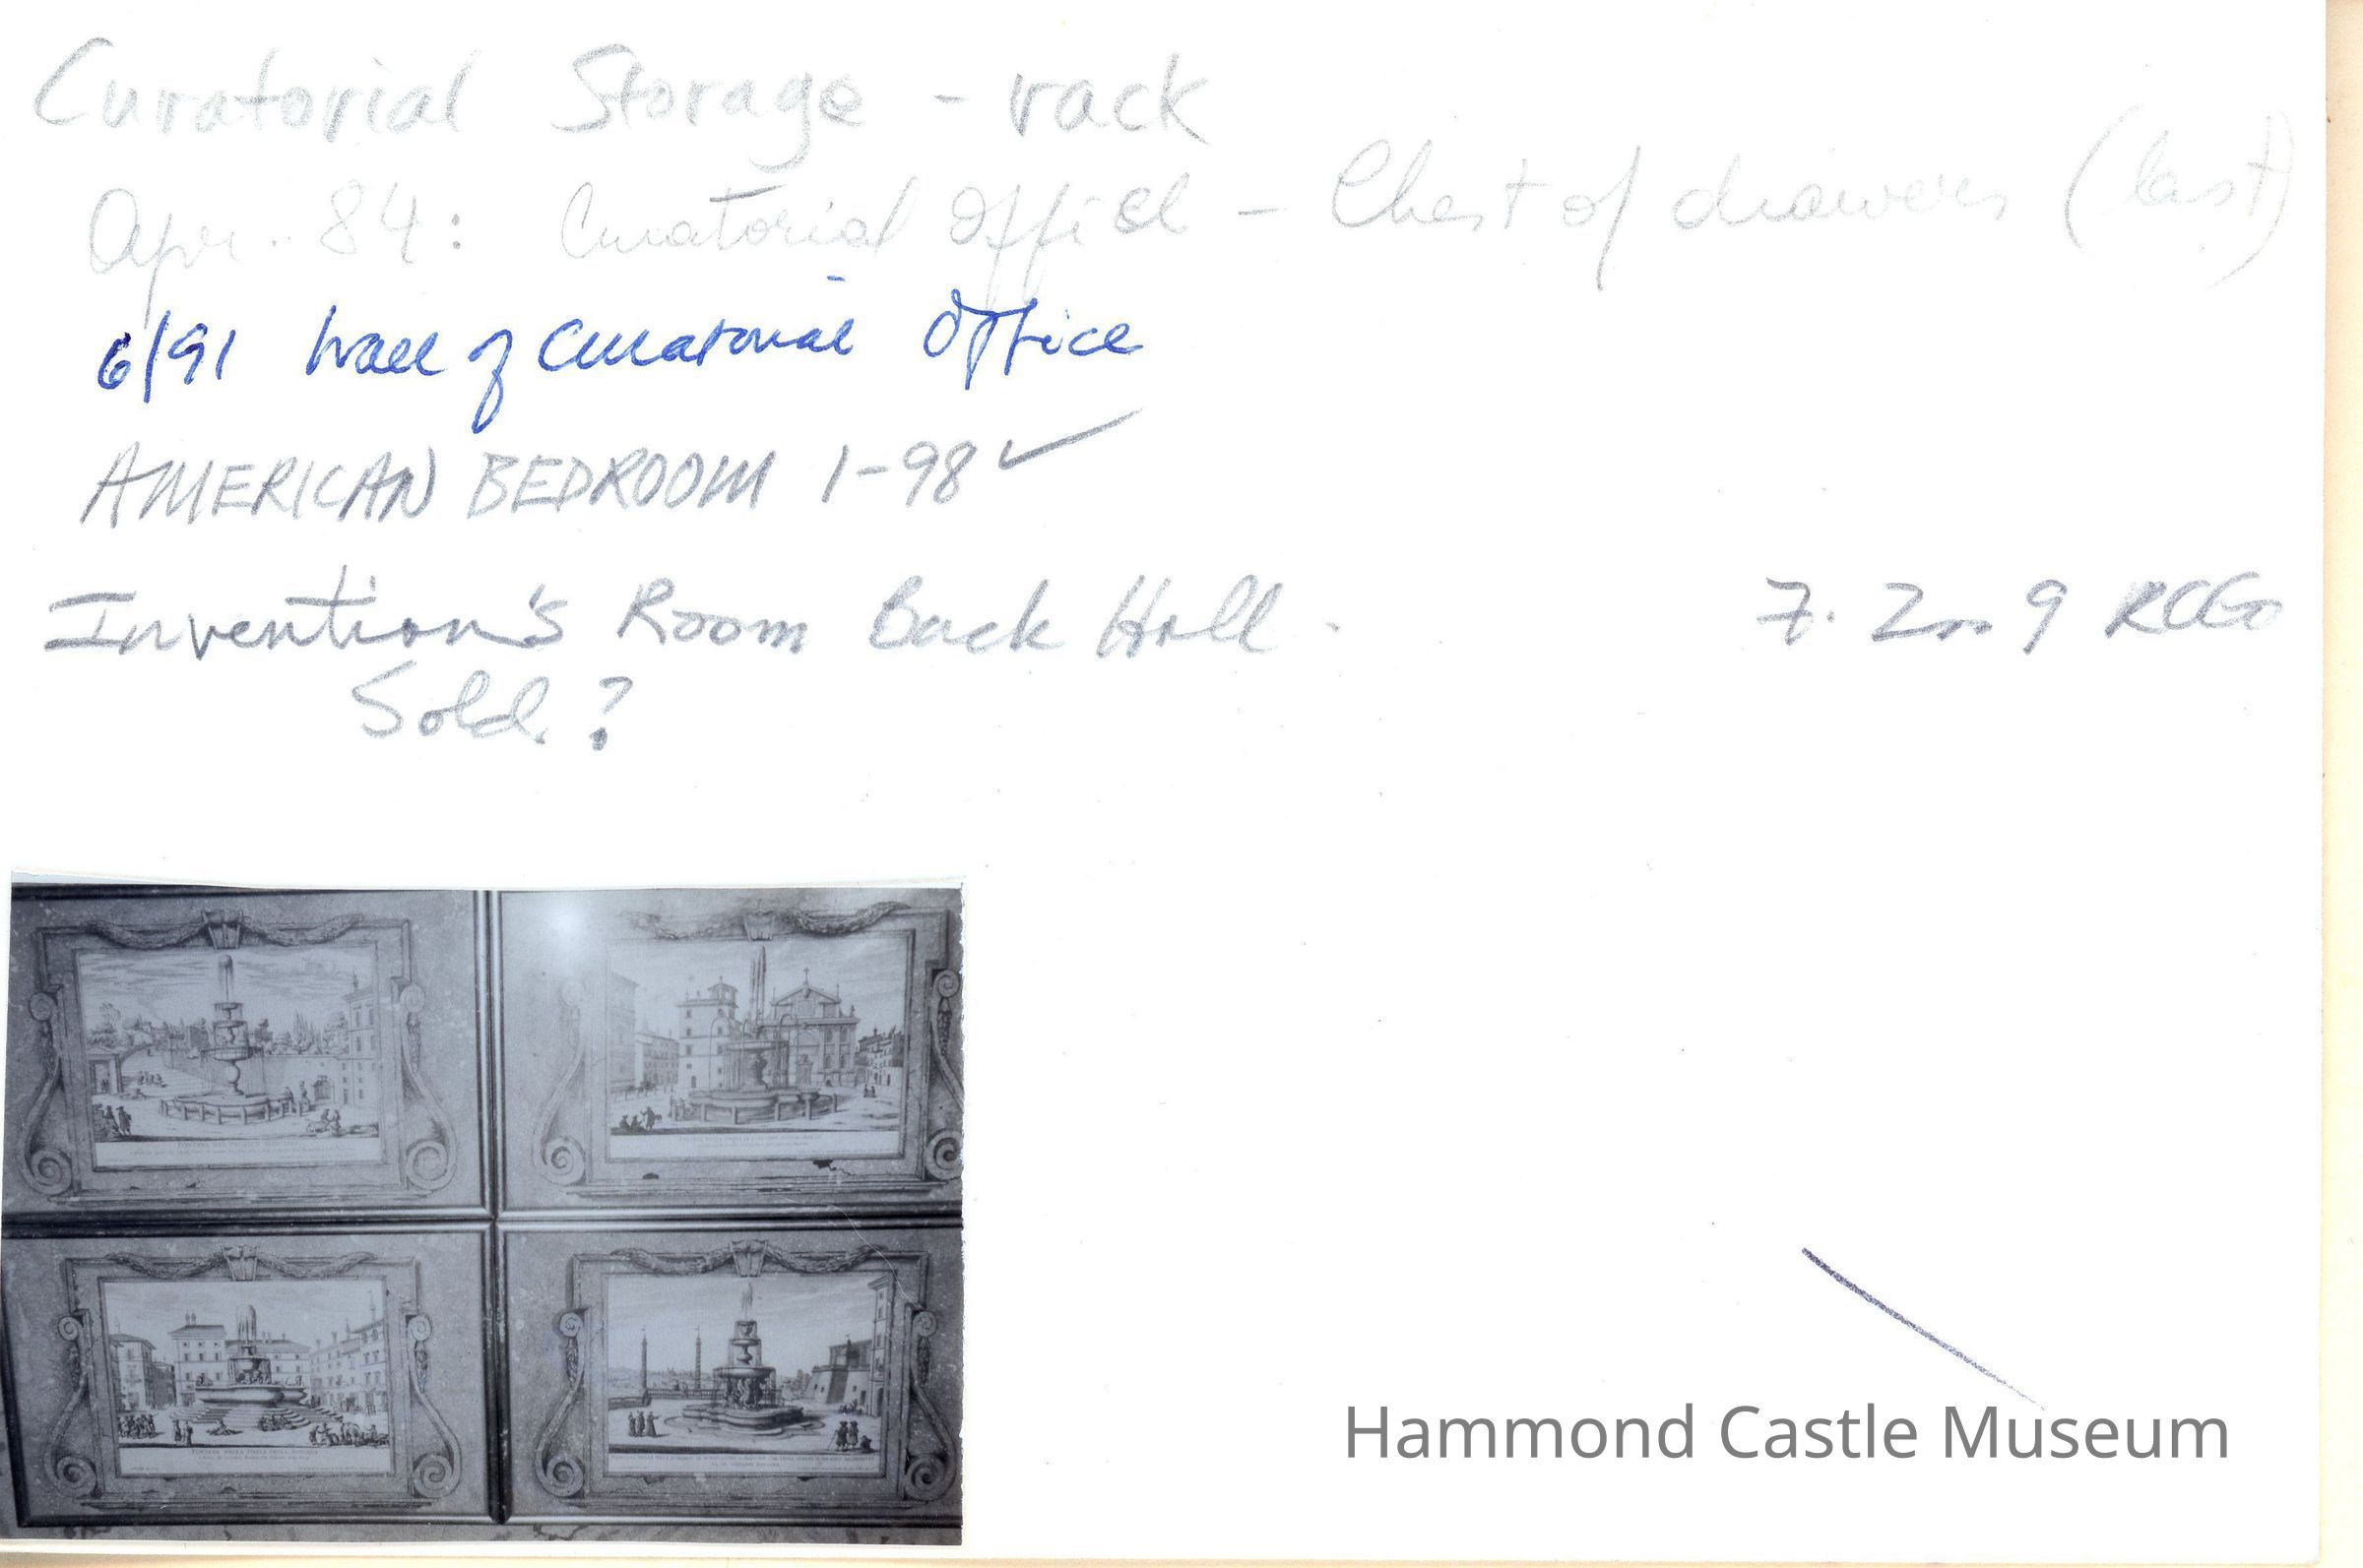 Curatorial Storage - rack
Apr. 84: Curatorial Office - Chest of drawers (last)
6/91 Wall of Curatorial Office
AMERICAN BEDROOM 1-98 ✓
Invention's Room Back Hall. 7. 2009 RCG
Sold?
Hammond Castle Museum